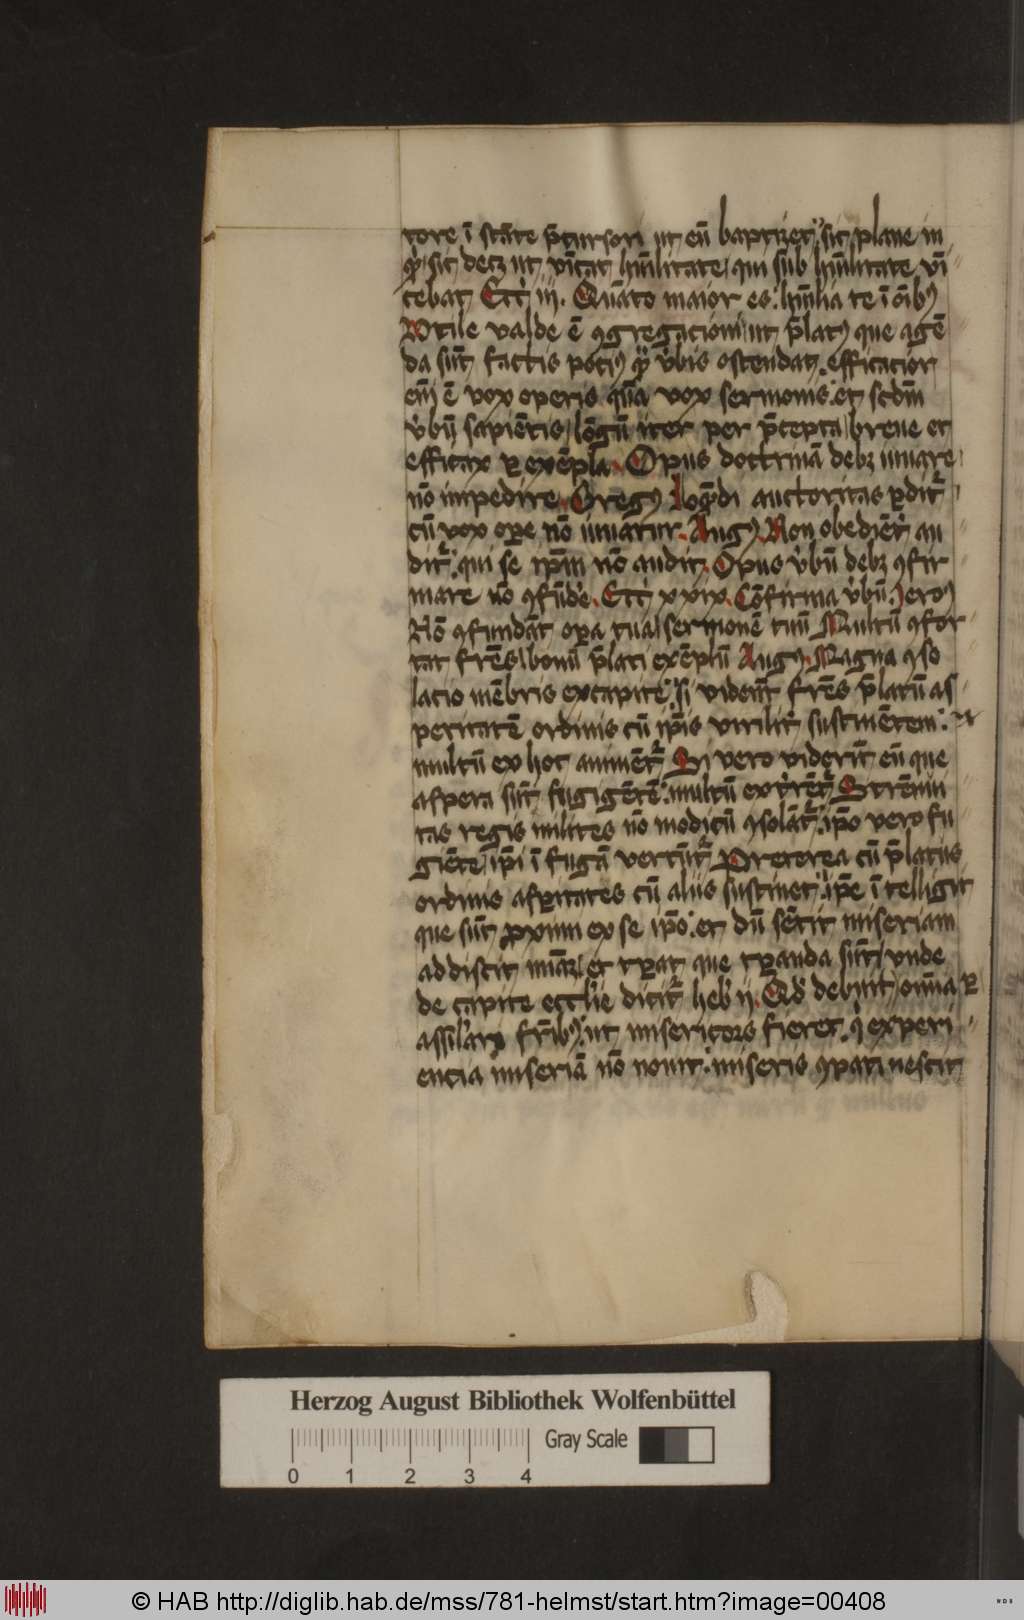 tore ī stāte p̄cursori ut eū baptizet sic plane in
qͦ sic decȝ ut vīcat hūilitate qui sub hūilitate vī
cebat Ecci iij. Quāto maior es hūilia te ī oībꝰ
Utile valde ē ꝯgregacioni ut p̄latꝰ que agē
da sūt factis pociꝰ qͣ vbis ostendat. efficacior
eīʒ ē vox operis quā vox sermonis. et scdm
v̓bū sapiētis lōgū iter per p̄cepta breue et
efficax ꝑ exēpla. Opus doctrinā debȝ iuuare
nō impedire. Gregꝰ loqͤdi auctoritas ꝑdit̉
cū vox oꝑe nō iuuatur. Augꝰ. Non obediēt̉ au
dit̉. qui se ip̄m nō audit. Opus v̓bū debȝ ꝯfir
mare nō ꝯfūde̓. Ecci xxix. Cōfirma v̓bū. Jeroꝰ
Nō ꝯfundāt oꝑa tua sermonē tuū Multū ꝯfor
tat fr̄es bonū p̄lati exēplū Augꝰ. Magna ꝯso
lacio mēbris ex capite. si vidēnt fr̄es p̄latū as
peritatē ordinis cū ip̄is virilit̉ sustinētem.
multū ex hoc animēt̉ Si vero viderīt eū que
aspera sūt fugigētē. multū ext̓rēt̉ Strēnui
tas regis milites nō modicū ꝯsolāt̉. ip̄o vero fu
giēte ip̄i ī fugā vertūt̉ Preterea cū p̄latus
ordinis asꝑitates cū aliis sustinet. ip̄e ītelligit
que sūt ꝓximi ex se ip̄o. et dū sētit miseriam
addiscit mīaȝ et tꝑat que tꝑanda sūt vnde
de capite eccl̓ie dicit̉ heb̓ ij. Qd̓ debuit omīa ꝑ
assil̓ari fr̄ibꝰ. ut misericors fieret. qͥ experi
encia miseriā nō nouit. miseris ꝯpati nescit
Herzog August Bibliothek Wolfenbüttel
Gray Scale
0 1 2 3 4
© HAB http://diglib.hab.de/mss/781-helmst/start.htm?image=00408